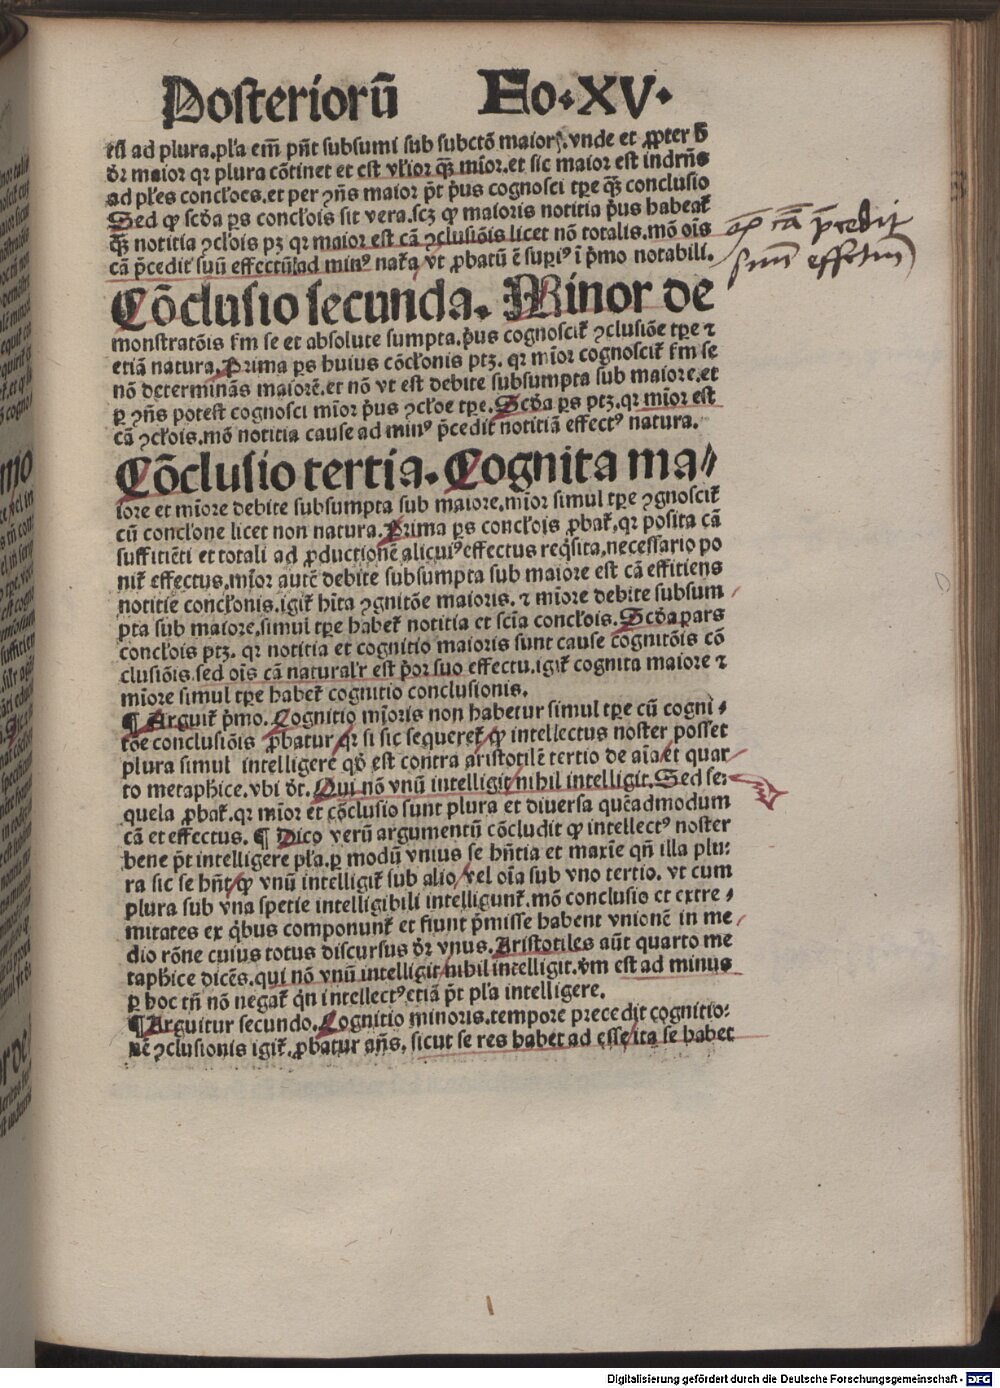 Posterioꝝ Fo.XV.
ad plura.pła em̄ pn̄t subsumi sub subctō maior.vnde et ꝓpter
dr̄ maior qꝛ plura cōtinet et est vl̄ior qꝫ mīor.et sic maior est indrn̄s
ad płes concłoes.et per ꝯn̄s maior pt̄ pͥus cognosci tꝑe qꝫ conclusio
Sed ꝙ scd̄a ps concłois sit vera.scꝫ ꝙ maioris notitia pͥus habeat̄
qꝫ notitia ꝯcłois pꝫ qꝛ maior est cā ꝯclusiōis licet nō totalis.mō oīs
cā p̄cedit suū effectū ad minꝰ nat̄a vt ꝓbatū ē supͥ i pͥmo notabili.
Cōclusio secunda. Minor de
monstratōis ẜm se et absolute sumpta.pͥus cognoscit̄ ꝯclusiōe tꝑe ⁊
etiā natura. Prima ps huius cōcłonis ptꝫ. qꝛ mīor cognoscit̄ ẜm se
nō determinās maiorē.et nō vt est debite subsumpta sub maiore.et
ꝑ ꝯn̄s potest cognosci mīor pͥus ꝯcłoe tꝑe. Scd̄a ps ptꝫ.qꝛ mīor est
cā ꝯcłois.mō notitia cause ad minꝰ p̄cedit notitiā effectꝰ natura.
Cōclusio tertia. Cognita ma⸗
iore et mīore debite subsumpta sub maiore.mīor simul tꝑe ꝯgnoscit̄
cū concłone licet non natura. Prima ps concłois ꝓbat̄.qꝛ posita cā
suffitiēti et totali ad ꝓductionē alicuiꝰ effectus reqͥsita,necessario po
nit̄ effectus,mīor autē debite subsumpta sub maiore est cā effitiens
notitie concłonis.igit̄ hīta ꝯgnitōe maioris. ⁊ mīore debite subsum
pta sub maiore,simul tꝑe habet̄ notitia et scīa concłois. Scd̄a pars
concłois ptꝫ. qꝛ notitia et cognitio maioris sunt cause cognitōis cō
clusiōis.sed oīs cā natural̄r est pͥor suo effectu.igit̄ cognita maiore ⁊
mīore simul tꝑe habet̄ cognitio conclusionis.
¶ Arguit̄ pͥmo. Cognitio mīoris non habetur simul tꝑe cū cogni⸗
tōe conclusiōis ꝓbatur qꝛ si sic sequeret̄ ꝙ intellectus noster posset
plura simul intelligere qd̄ est contra aristotilē tertio de aīa et quar
to metaphice.vbi dr̄. Qui nō vnū intelligit nihil intelligit. Sed se⸗
quela ꝓbat̄.qꝛ mīor et cōclusio sunt plura et diversa quēadmodum
cā et effectus. ¶ Dico verū argumentū cōcludit ꝙ intellectꝰ noster
bene pt̄ intelligere pła.ꝑ modū vnius se hn̄tia et maxīe qn̄ illa plu⸗
ra sic se hn̄t ꝙ vnū intelligit̄ sub alio vel oīa sub vno tertio. vt cum
plura sub vna spetie intelligibili intelligunt̄.mō conclusio et extre⸗
mitates ex qͥbus componunt̄ et fiunt p̄misse habent vnionē in me
dio rōne cuius totus discursus dr̄ vnus. Aristotiles aūt quarto me
taphice dicēs.qui nō vnū intelligit nihil intelligit. est ad minus
ꝑ hoc tn̄ nō negat̄ qͥn intellectꝰ etiā pt̄ pła intelligere.
¶ Arguitur secundo. Cognitio minoris.tempore precedit cognitio⸗
nē ꝯclusionis igit̄. ꝓbatur an̄s. sicut se res habet ad esse ita se habet
cā p̄cedit
suū effectū
Digitalisierung gefördert durch die Deutsche Forschungsgemeinschaft - DFG